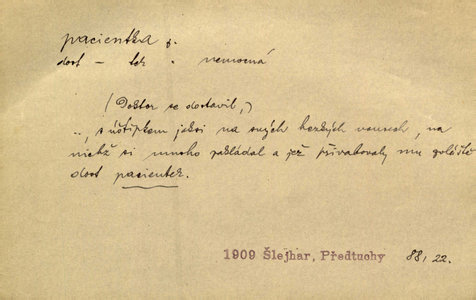 pacientka f.
dost - tek . nemocná
(Doktor se dostavil,)
.., s úštipkem jaksi na svých hezkých vousech, na
nichž si mnoho zakládal a jež přivabovaly mu
dost pacientek.
1909 Šlejhar, Předtuchy 88, 22.